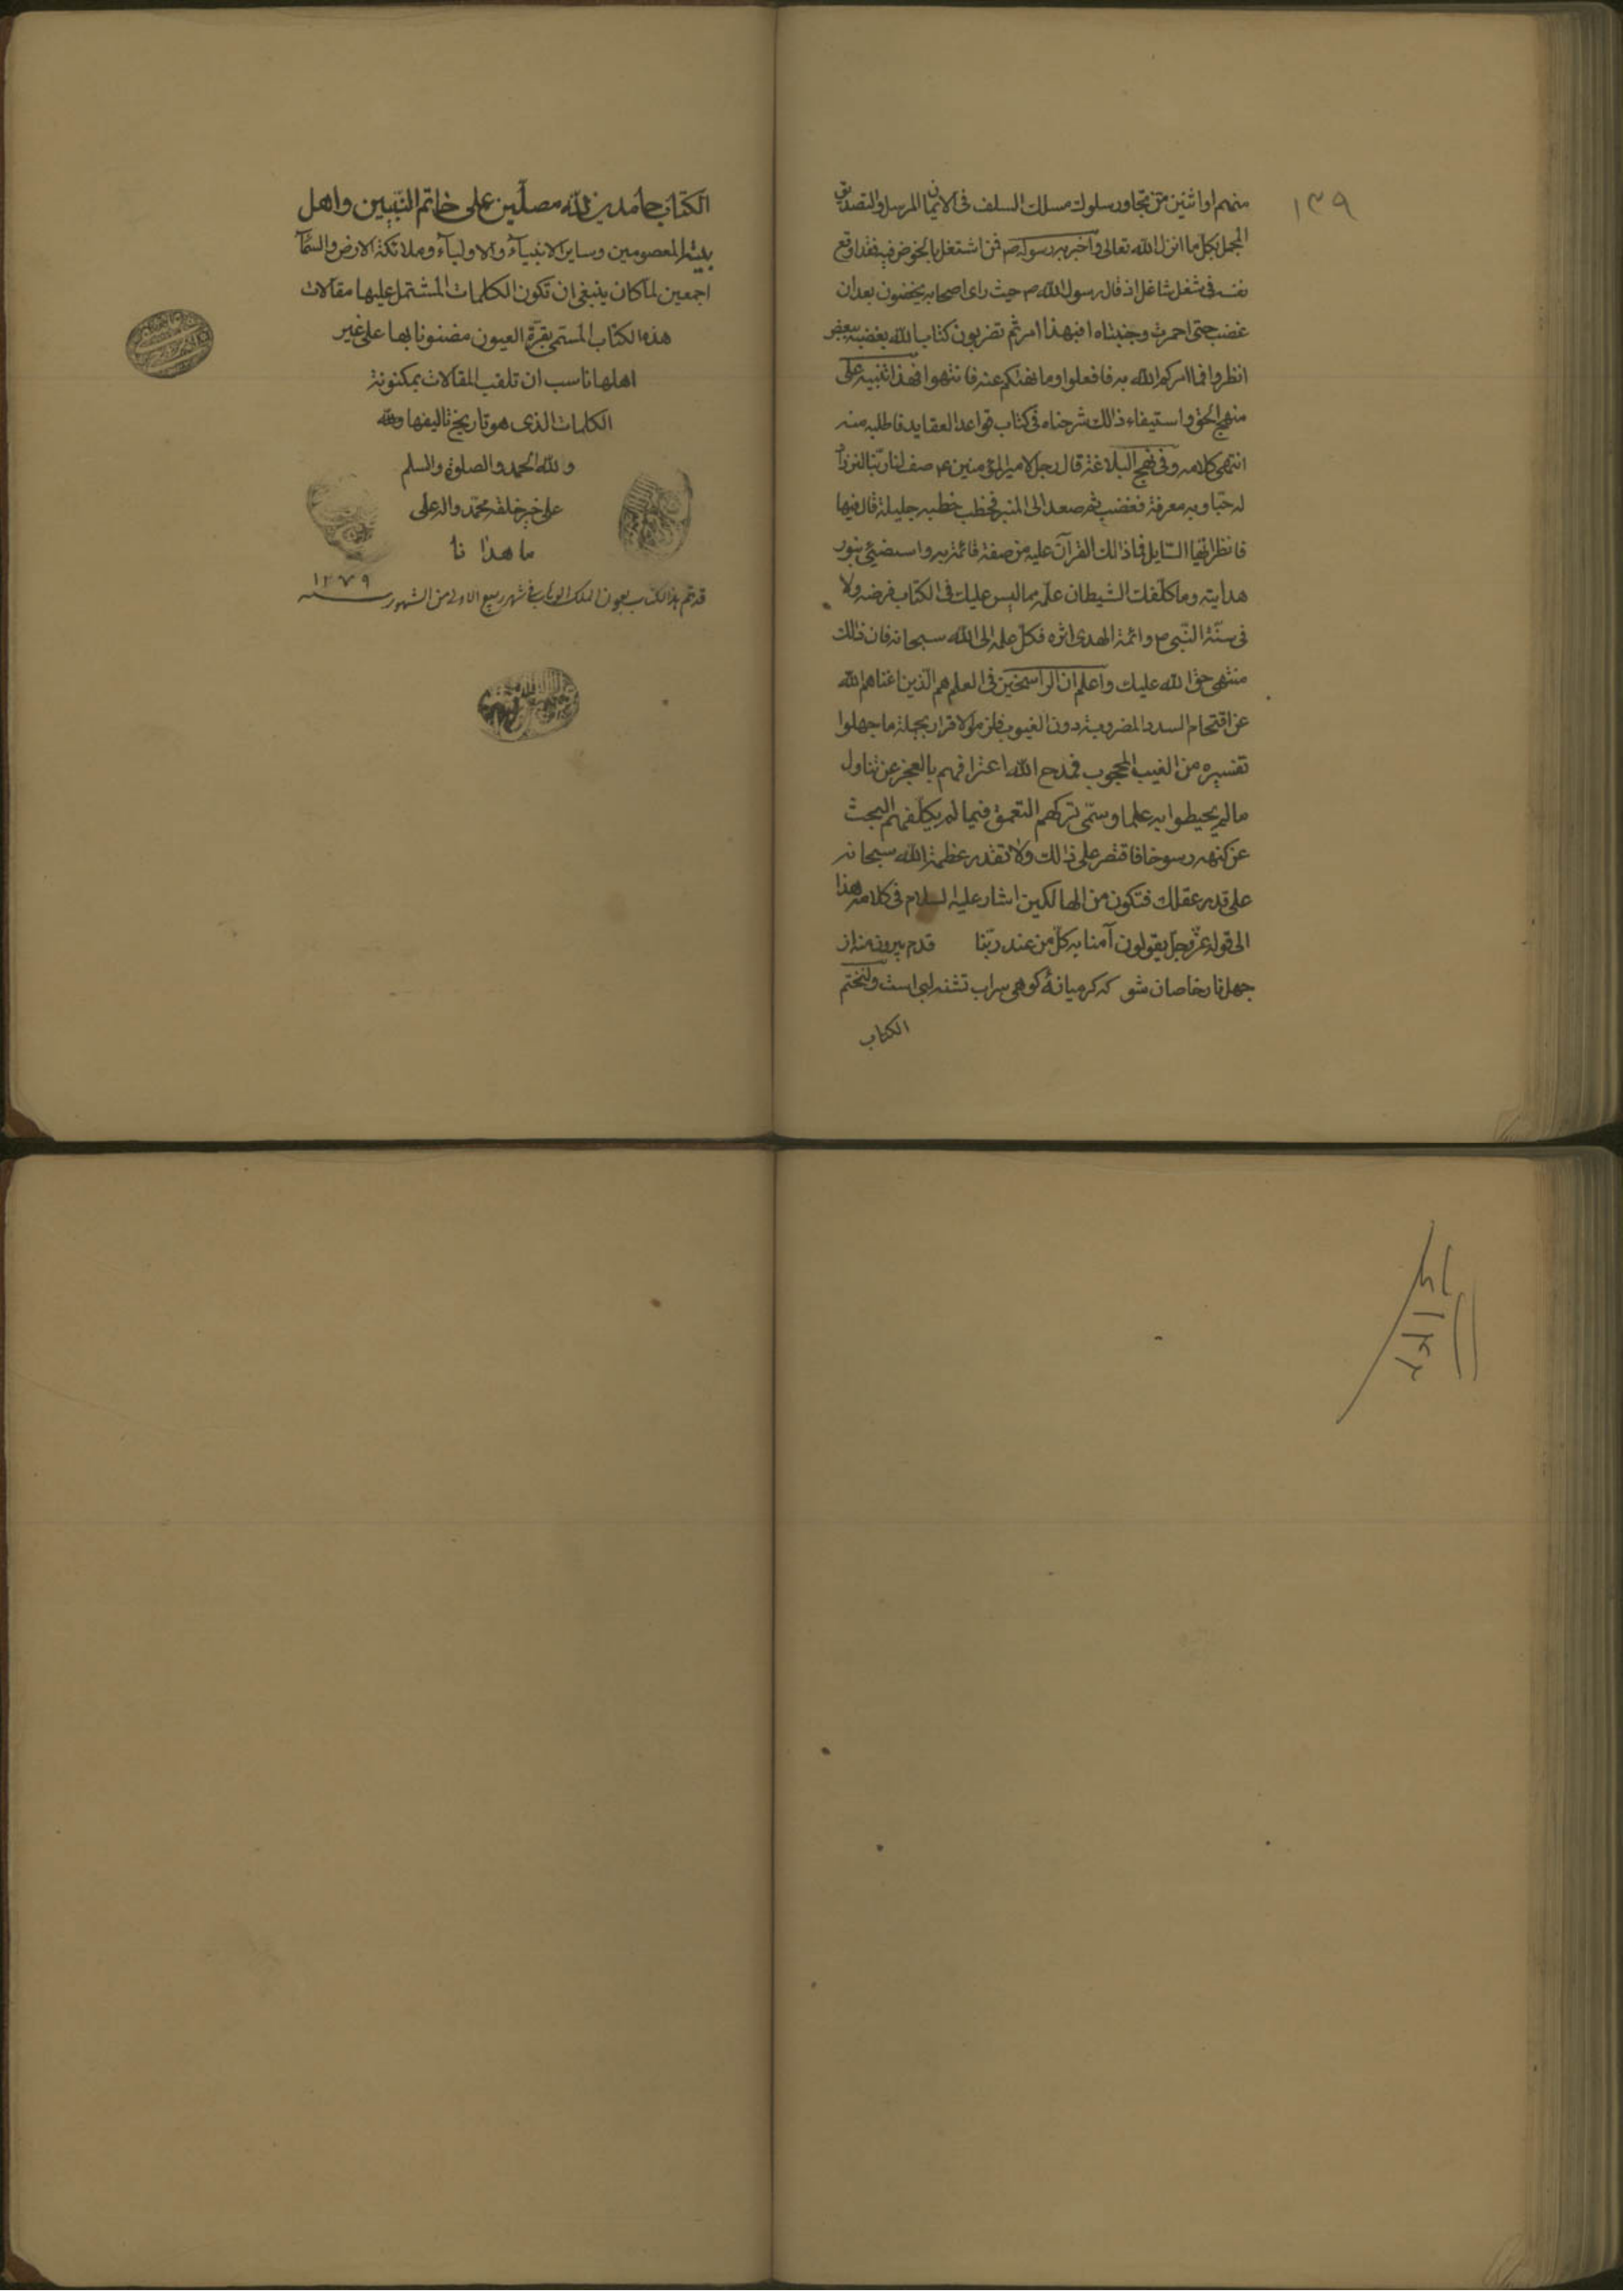 ١٣٩
منهم او اثنين من تجاوز سلوك مسلك السلف فى الايمان المرسل والتصديق
المجمل بكل ما انزل الله تعالى واخبر به رسوله ص فمن اشتغل بالخوض فيه فقد اوقع
نفسه فى شغل شاغل اذ قال رسول الله ص حيث راى اصحابه يخضون بعد ان
غضب حتى احمرت وجنتاه افبهذا امرتم تضربون كتاب الله بعضه ببعض
انظروا فما امركم الله به فافعلوا وما نهيكم عنه فانتهوا فهذا تنبيه على
منهج الحق واستيفاء ذلك شرحناه فى كتاب قواعد العقايد فاطلبه منه
انتهى كلامه وفى نهج البلاغة قال رجل لامير المؤمنين ع صف لنا ربنا لنزداد
له حبا وبه معرفة فغضب ثم صعد الى المنبر فخطب خطبه جليلة قال فيها
فانظر ايها السايل فما دلك القرآن عليه من صفته فائتم به واستضئ بنور
هدايته وما كلفك الشيطان علمه مما ليس عليك فى الكتاب فرضه ولا
فى سنة النبى ص وائمة الهدى اثره فكل علمه الى الله سبحانه فان ذلك
منتهى حق الله عليك واعلم ان الراسخين فى العلم هم الذين اغناهم الله
عن اقتحام السدد المضروبة دون الغيوب فلزموا الاقرار بجملة ما جهلوا
تفسيره من الغيب المحجوب فمدح الله اعترافهم بالعجز عن تناول
ما لم يحيطوا به علما وسمى تركهم التعمق فيما لم يكلفهم البحث
عن كنهه رسوخا فاقتصر على ذلك ولا تقدر عظمة الله سبحانه
على قدر عقلك فتكون من الهالكين اشار عليه السلام فى كلامه هذا
الى قوله عز وجل يقولون آمنا به كل من عند ربنا قدم بيرون منه از
جهل نار خاصان شو كه كر ميانۀ كوهى سراب تشنه لبى است ولنختم
الكتاب
الكتاب حامدين لله مصلين على خاتم النبيين واهل
بيته المعصومين وساير الانبيآء والاوليآء وملائكة الارض والسمآ
اجمعين لما كان ينبغى ان تكون الكلمات المشتمل عليها مقالات
هذه الكتاب المسمى بقرة العيون مضنونا بها على غير
اهلها ناسب ان تلقب المقالات بمكنونة
الكلمات الذى هو تاريخ تاليفها ولله
ولله الحمد والصلوة والسلم
على خير خلقه محمد واله على
ما هدانا
قد تم هذا الكتاب بعون الملك الوهاب فى شهر ربيع الاول من الشهور سنه ١٢٧٩